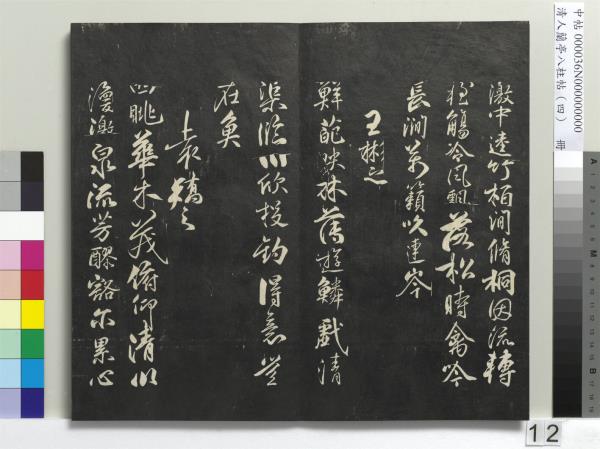 中帖 000036N000000000
清人蘭亭八柱帖（四） 冊
激中逵竹柏澗脩桐因流轉
輕觴冷風飄落松時禽吟
長澗萬籟吹連岑
王彬之
鮮葩映林薄遊鱗戲清
渠臨川欣投釣得意豈
在魚
袁嶠之
四眺華木茂俯仰清川
渙激泉流芳醪豁尓累心
12